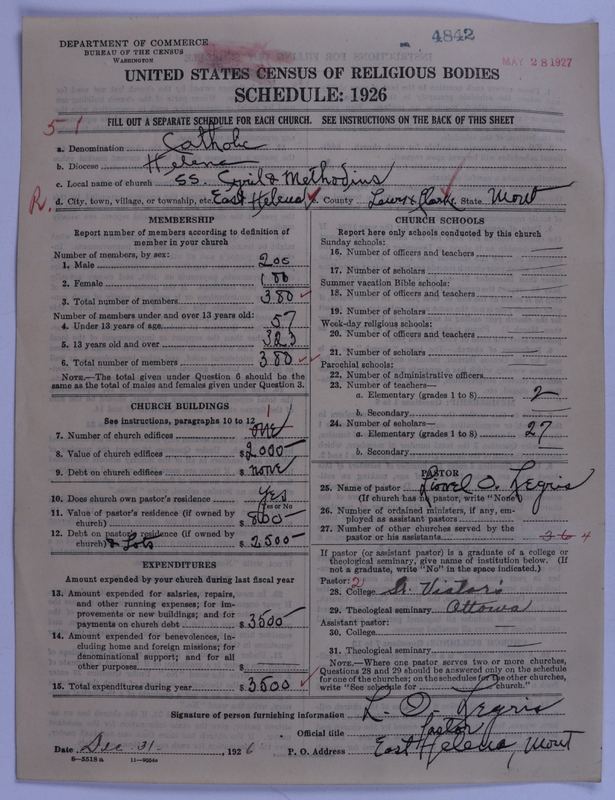 4842
MAY 28 1927
DEPARTMENT OF COMMERCE
BUREAU OF THE CENSUS
WASHINGTON
UNITED STATES CENSUS OF RELIGIOUS BODIES
SCHEDULE: 1926
51
FILL OUT A SEPARATE SCHEDULE FOR EACH CHURCH. SEE INSTRUCTIONS ON THE BACK OF THIS SHEET
a. Denomination Catholic
b. Diocese Helena
c. Local name of church SS. Cyril & Methodius
R. d. City, town, village, or township, etc. East Helena County Lewis & Clarke State Mont
MEMBERSHIP
Report number of members according to definition of
member in your church
Number of members, by sex:
1. Male 200
2. Female 180
3. Total number of members 380
Number of members under and over 13 years old:
4. Under 13 years of age 57
5. 13 years old and over 323
6. Total number of members 380
NOTE.—The total given under Question 6 should be the
same as the total of males and females given under Question 3.
CHURCH BUILDINGS
See instructions, paragraphs 10 to 12
1
7. Number of church edifices one
8. Value of church edifices $2000
9. Debt on church edifices $none
10. Does church own pastor's residence Yes
Yes or No
11. Value of pastor's residence (if owned by
church) $800
12. Debt on pastor's residence (if owned by
church) & Lots $2500
EXPENDITURES
Amount expended by your church during last fiscal year
13. Amount expended for salaries, repairs,
and other running expenses; for im-
provements or new buildings; and for
payments on church debt $3500
14. Amount expended for benevolences, in-
cluding home and foreign missions; for
denominational support; and for all
other purposes $
15. Total expenditures during year $3500
CHURCH SCHOOLS
Report here only schools conducted by this church
Sunday schools:
16. Number of officers and teachers
17. Number of scholars
Summer vacation Bible schools:
18. Number of officers and teachers
19. Number of scholars
Week-day religious schools:
20. Number of officers and teachers
21. Number of scholars
Parochial schools:
22. Number of administrative officers
23. Number of teachers—
a. Elementary (grades 1 to 8) 2
b. Secondary
24. Number of scholars—
a. Elementary (grades 1 to 8) 27
b. Secondary
PASTOR
25. Name of pastor Lionel O. Legris
(If church has no pastor, write "None")
26. Number of ordained ministers, if any, em-
ployed as assistant pastors
27. Number of other churches served by the
pastor or his assistants 4
If pastor (or assistant pastor) is a graduate of a college or
theological seminary, give name of institution below. (If
not a graduate, write "No" in the space indicated.)
Pastor: 2
28. College St. Viator's
29. Theological seminary Ottowa
Assistant pastor:
30. College
31. Theological seminary
NOTE.—Where one pastor serves two or more churches,
Questions 28 and 29 should be answered only on the schedule
for one of the churches; on the schedules for the other churches,
write "See schedule for church."
Signature of person furnishing information L. O. Legris
Official title Pastor
Date Dec. 31, 1926 P. O. Address East Helena, Mont
8—5518a 11—9054a